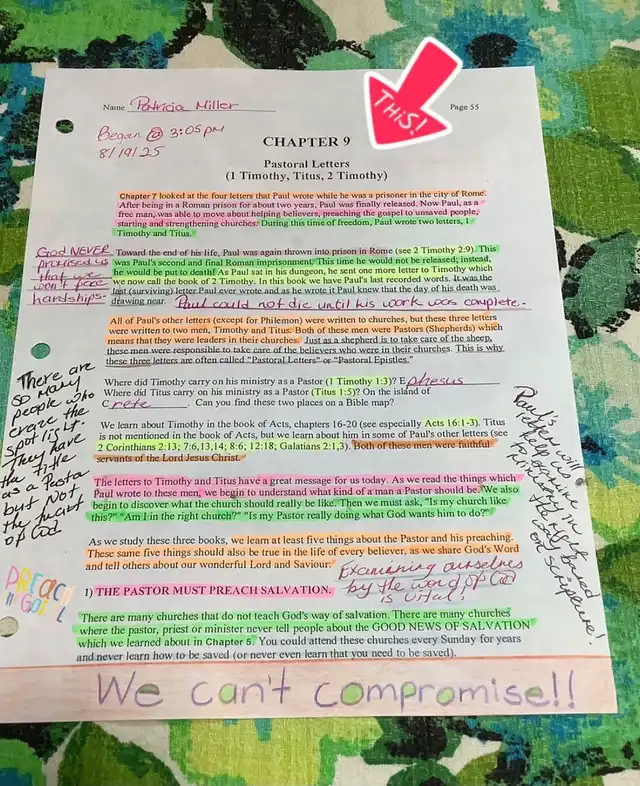 THIS!
Name Patricia Miller
Page 55
Began @ 3:05pm
8/19/25
CHAPTER 9
Pastoral Letters
(1 Timothy, Titus, 2 Timothy)
Chapter 7 looked at the four letters that Paul wrote while he was a prisoner in the city of Rome.
After being in a Roman prison for about two years, Paul was finally released. Now Paul, as a
free man, was able to move about helping believers, preaching the gospel to unsaved people,
starting and strengthening churches. During this time of freedom, Paul wrote two letters, 1
Timothy and Titus.
God NEVER
promised us
that we
won't face
hardships.
Toward the end of his life, Paul was again thrown into prison in Rome (see 2 Timothy 2:9). This
was Paul's second and final Roman imprisonment. This time he would not be released; instead,
he would be put to death! As Paul sat in his dungeon, he sent one more letter to Timothy which
we now call the book of 2 Timothy. In this book we have Paul's last recorded words. It was the
last (surviving) letter Paul ever wrote and as he wrote it Paul knew that the day of his death was
drawing near. Paul could not die until his work was complete.
All of Paul's other letters (except for Philemon) were written to churches, but these three letters
were written to two men, Timothy and Titus. Both of these men were Pastors (Shepherds) which
means that they were leaders in their churches. Just as a shepherd is to take care of the sheep,
these men were responsible to take care of the believers who were in their churches. This is why
these three letters are often called "Pastoral Letters" or "Pastoral Epistles."
There are
so many
people who
crave the
spotlight.
They have
the title
as a Pastor
but NOT
the heart
of God
Where did Timothy carry on his ministry as a Pastor (1 Timothy 1:3)? Ephesus
Where did Titus carry on his ministry as a Pastor (Titus 1:5)? On the island of
Crete. Can you find these two places on a Bible map?
We learn about Timothy in the book of Acts, chapters 16-20 (see especially Acts 16:1-3). Titus
is not mentioned in the book of Acts, but we learn about him in some of Paul's other letters (see
2 Corinthians 2:13; 7:6,13,14; 8:6; 12:18; Galatians 2:1,3). Both of these men were faithful
servants of the Lord Jesus Christ.
The letters to Timothy and Titus have a great message for us today. As we read the things which
Paul wrote to these men, we begin to understand what kind of a man a Pastor should be. We also
begin to discover what the church should really be like. Then we must ask, "Is my church like
this?" "Am I in the right church?" "Is my Pastor really doing what God wants him to do?"
Paul's
will
us
based
on scripture!
As we study these three books, we learn at least five things about the Pastor and his preaching.
These same five things should also be true in the life of every believer, as we share God's Word
and tell others about our wonderful Lord and Saviour.
Examining ourselves
by the word of God
is vital!
PREACH
1) THE PASTOR MUST PREACH SALVATION.
There are many churches that do not teach God's way of salvation. There are many churches
where the pastor, priest or minister never tell people about the GOOD NEWS OF SALVATION
which we learned about in Chapter 5. You could attend these churches every Sunday for years
and never learn how to be saved (or never even learn that you need to be saved).
We can't compromise!!